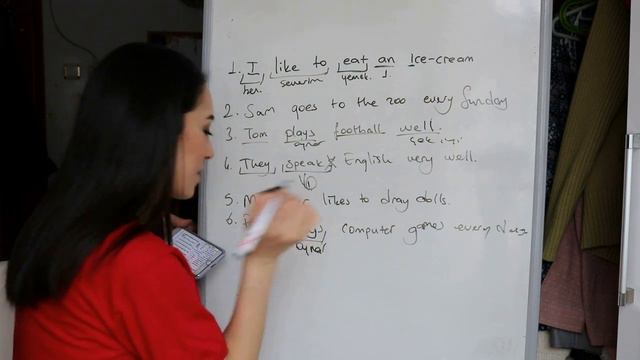 1. I like to eat an Ice-cream
ben. severim yemek. 1
2. Sam goes to the zoo every Sunday
3. Tom plays football well.
oynar çok iyi
4. They speak English very well.
V1
5. M likes to dray dolls.
6. computer games every
oynar